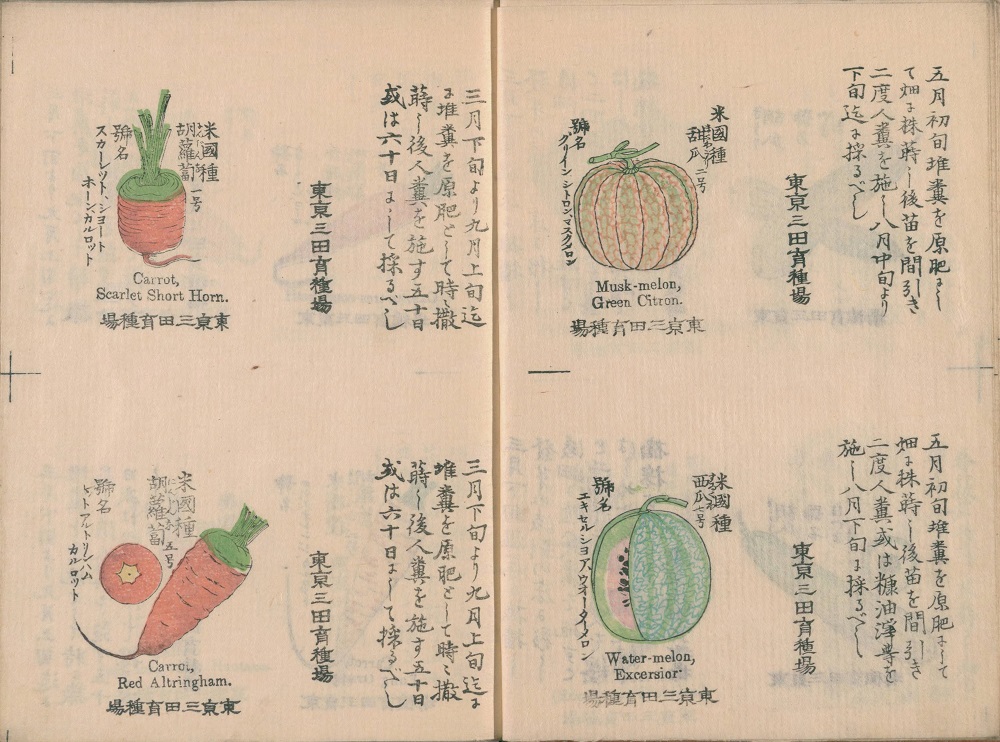 五月初旬堆糞を原肥とし
て畑に株蒔し後苗を間引き
二度人糞を施し八月中旬より
下旬迄に採るべし
東京三田育種場
米國種
甜瓜 二号
號名
グリイン、シトロン、マスクメロン
Musk-melon,
Green Citron.
東京三田育種場
三月下旬より九月上旬迄
に堆糞を原肥として時々撒
蒔し後人糞を施す五十日
或は六十日にして採るべし
東京三田育種場
米國種
胡蘿蔔 一号
號名
スカーレット、ショート
ホーンカルロット
Carrot,
Scarlet Short Horn.
東京三田育種場
五月初旬堆糞を原肥として
畑に株蒔し後苗を間引き
二度人糞或は糠油滓等を
施し八月下旬に採るべし
東京三田育種場
米國種
西瓜 七号
號名
エキセルショア、ウオーターメロン
Water-melon,
Excersior
東京三田育種場
三月下旬より九月上旬迄に
堆糞を原肥として時々撒
蒔し後人糞を施す五十日
或は六十日にして採るべし
東京三田育種場
米國種
胡蘿蔔 五号
號名
カルロット
Carrot,
Red Altringham.
東京三田育種場